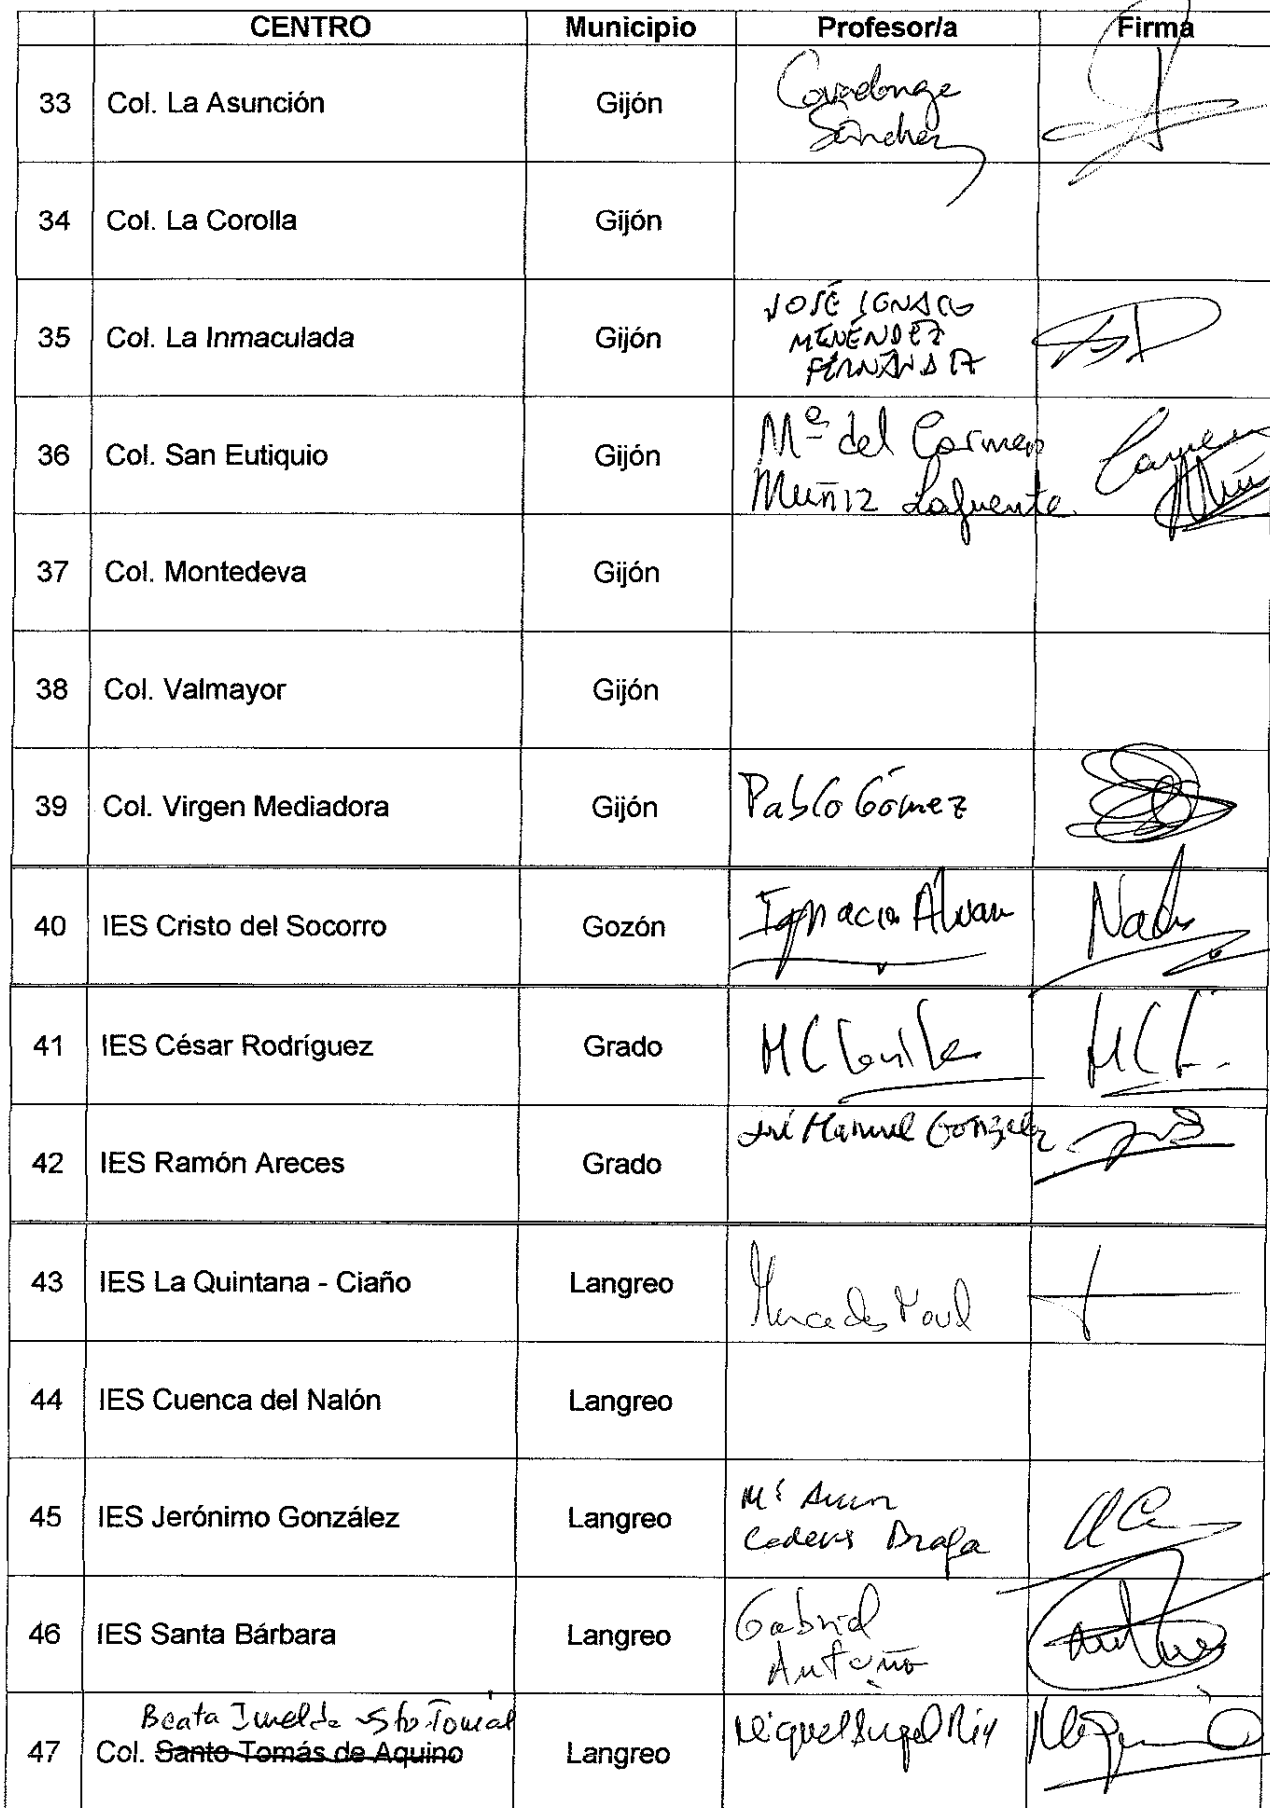 CENTRO Municipio Profesor/a Firma
33 Col. La Asunción Gijón Covadonga
Sánchez
34 Col. La Corolla Gijón
35 Col. La Inmaculada Gijón JOSÉ IGNACIO
MENÉNDEZ
FERNÁNDEZ
36 Col. San Eutiquio Gijón Mª del Carmen Carmen
Muñiz Lafuente
37 Col. Montedeva Gijón
38 Col. Valmayor Gijón
39 Col. Virgen Mediadora Gijón Pablo Gómez
40 IES Cristo del Socorro Gozón Ignacio
41 IES César Rodríguez Grado MC
42 IES Ramón Areces Grado José Manuel González
43 IES La Quintana - Ciaño Langreo Mercedes
44 IES Cuenca del Nalón Langreo
45 IES Jerónimo González Langreo Mª
Braga
46 IES Santa Bárbara Langreo Gabriel
Antuño
Beata Imelda - Sto. Tomás
47 Col. Santo Tomás de Aquino Langreo Miguel Angel